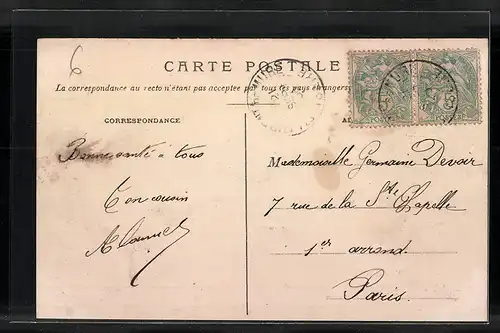 6
CARTE POSTALE
La correspondance au recto n'étant pas acceptée par tous les pays étrangers
CORRESPONDANCE
Bonne santé à tous
Ton cousin
Mademoiselle Germaine Devoir
7 rue de la Ste Chapelle
1er arrond.
Paris.